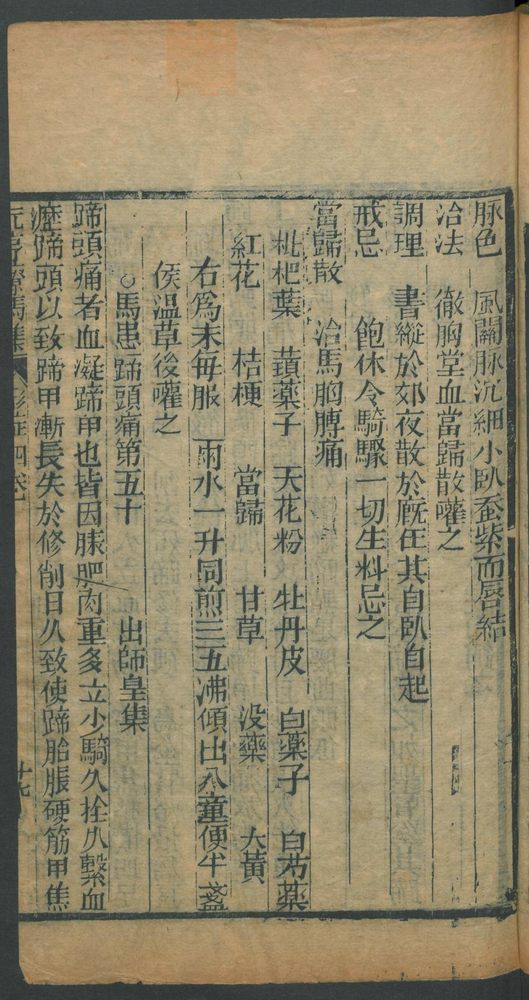 脉色　風關脉沉細小臥蚕紫而唇結
治法　徹胸堂血當歸散嚾之
調理　書縱於郊夜散於廐任其自臥自起
戒忌　飽休令騎驟一切生料忌之
當歸散　治馬胸膊痛
枇杷葉　蕡藥子　天花粉　牡丹皮　白藥子　白芍藥
紅花　桔梗　當歸　甘草　没藥　大黃
右爲末毎服二兩水一升同煎三五沸傾出入童便半盞
侯温草後嚾之
○馬患蹄頭痛第五十　出師皇集
蹄頭痛者血凝蹄甲也皆因膘肥肉重多立少騎久拴久繫血
瘀蹄頭以致蹄甲漸長失於修削日久致使蹄胎脹硬筋甲焦
元亨療馬集　四卷　十七